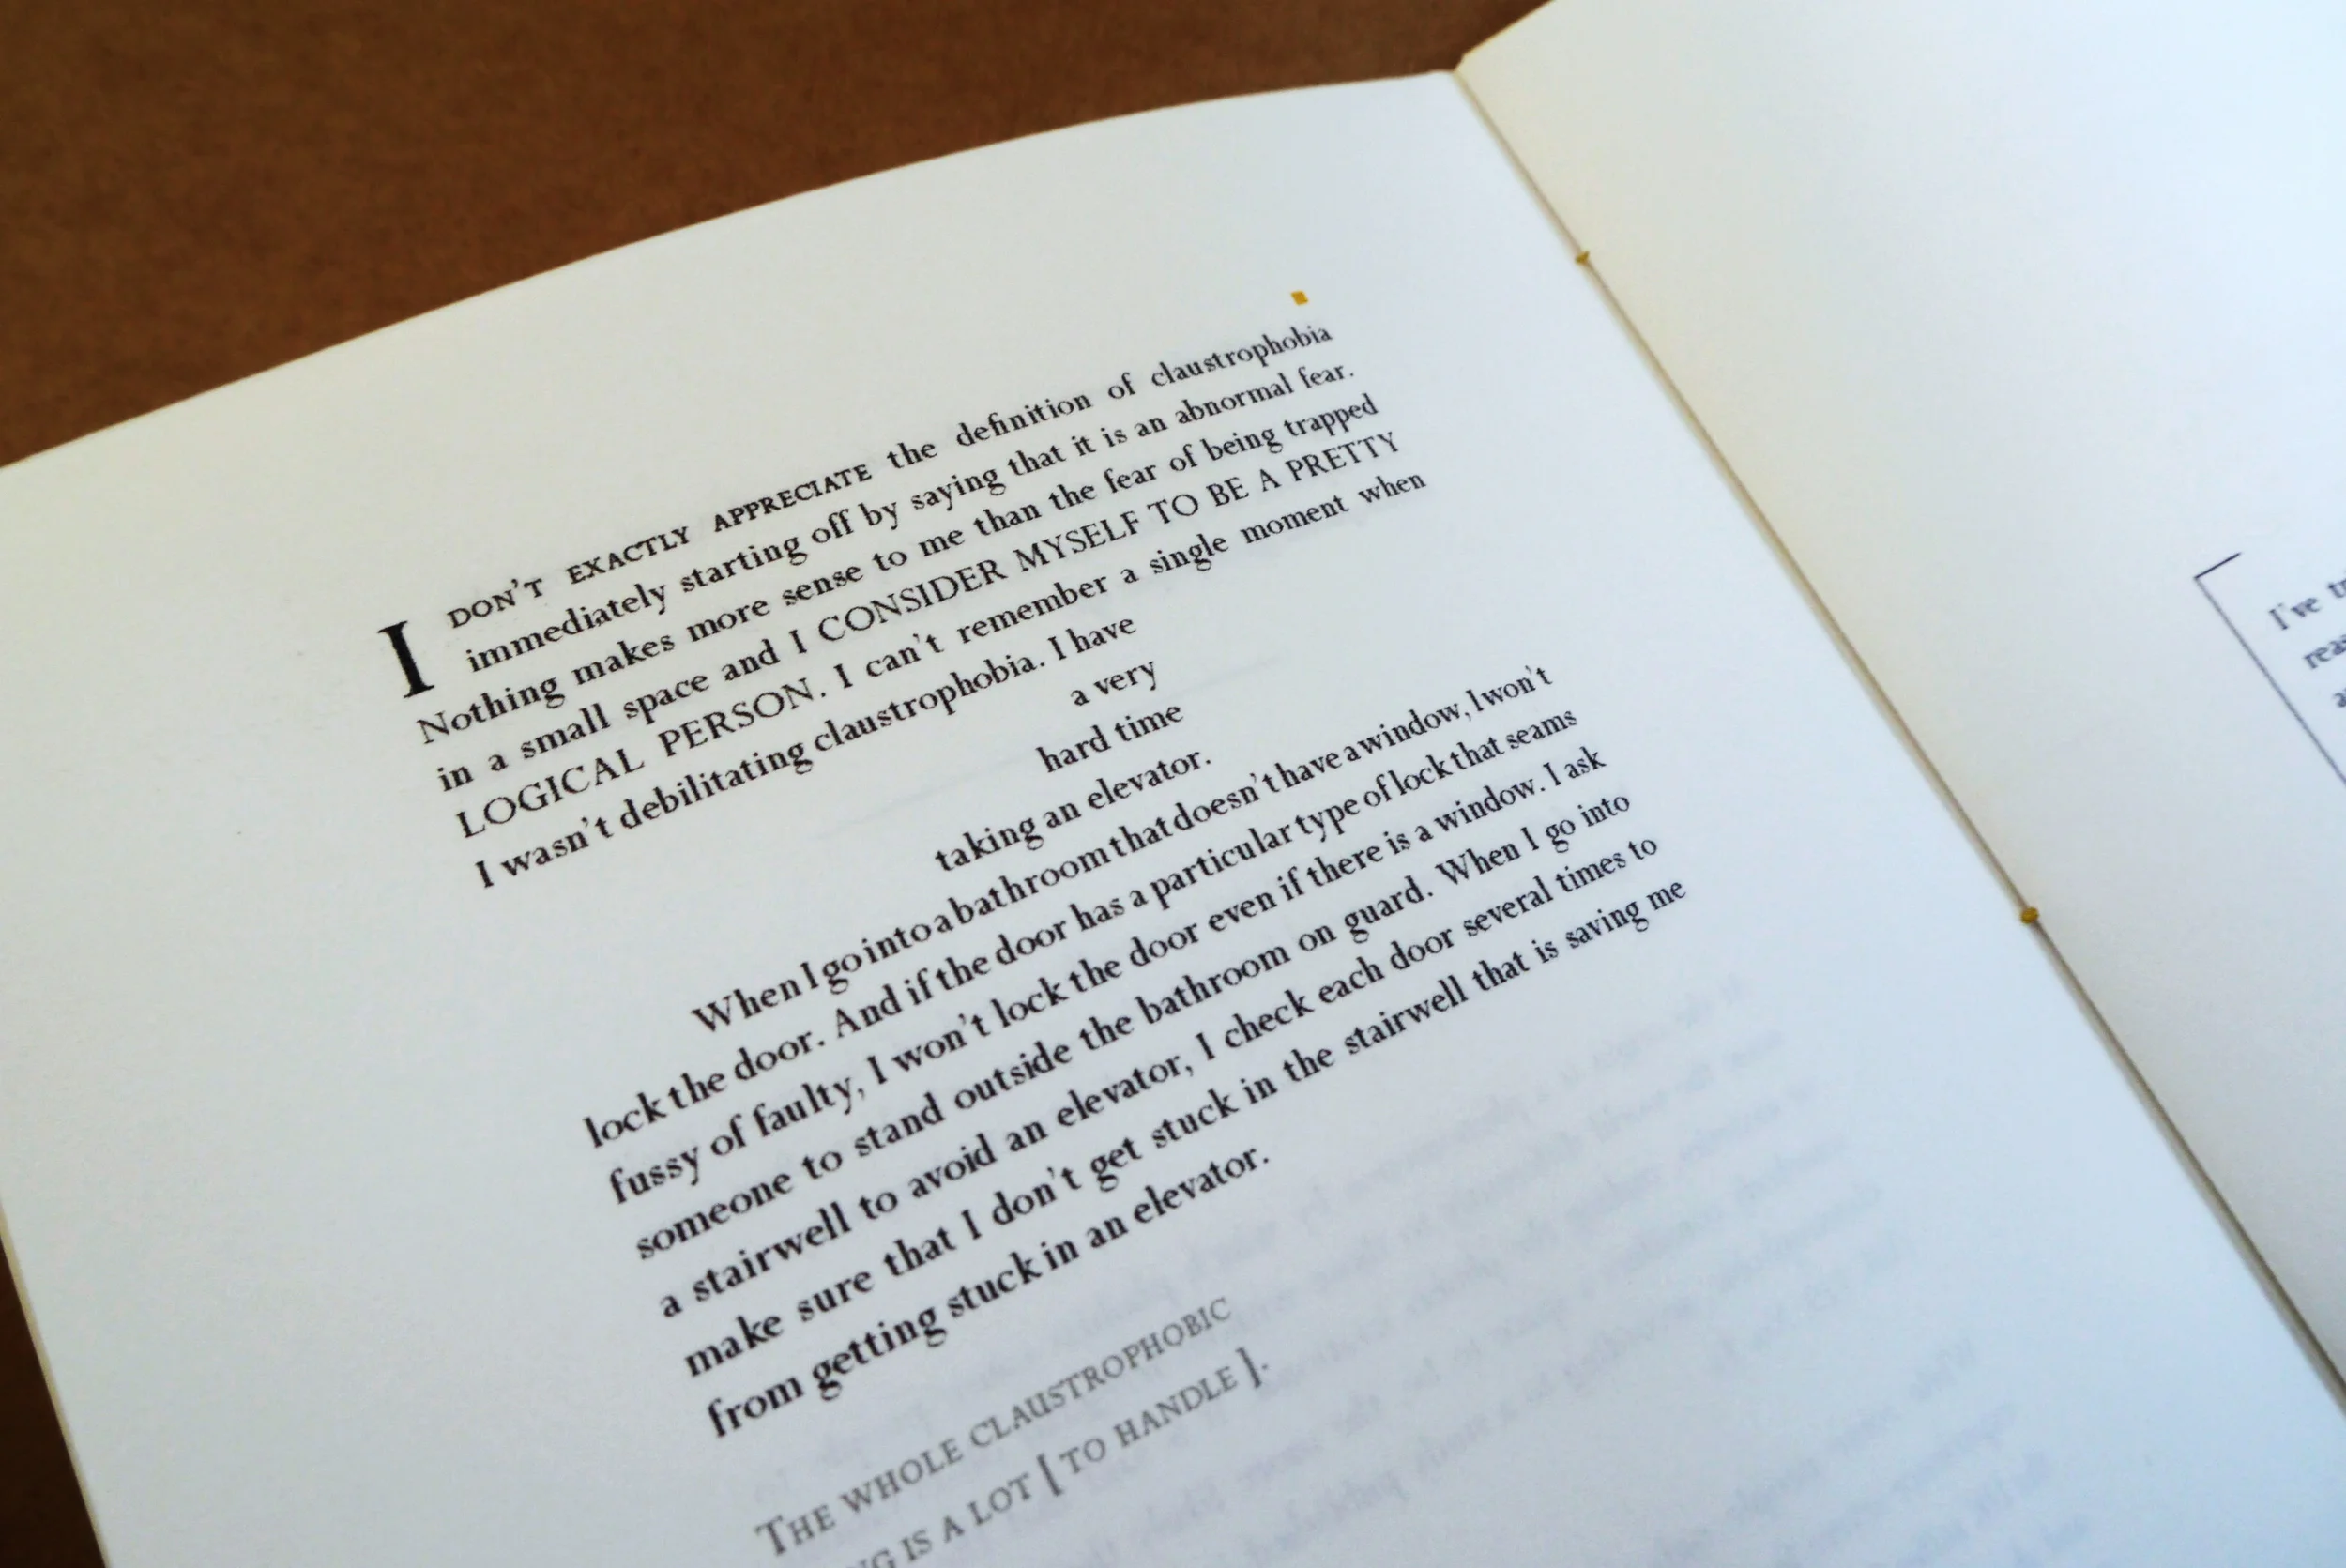 I DON'T EXACTLY APPRECIATE the definition of claustrophobia
immediately starting off by saying that it is an abnormal fear.
Nothing makes more sense to me than the fear of being trapped
in a small space and I CONSIDER MYSELF TO BE A PRETTY
LOGICAL PERSON. I can't remember a single moment when
I wasn't debilitating claustrophobia. I have
a very
hard time
taking an elevator.
When I go into a bathroom that doesn't have a window, I won't
lock the door. And if the door has a particular type of lock that seams
fussy of faulty, I won't lock the door even if there is a window. I ask
someone to stand outside the bathroom on guard. When I go into
a stairwell to avoid an elevator, I check each door several times to
make sure that I don't get stuck in the stairwell that is saving me
from getting stuck in an elevator.
THE WHOLE CLAUSTROPHOBIC
IS A LOT [ TO HANDLE ].
I've